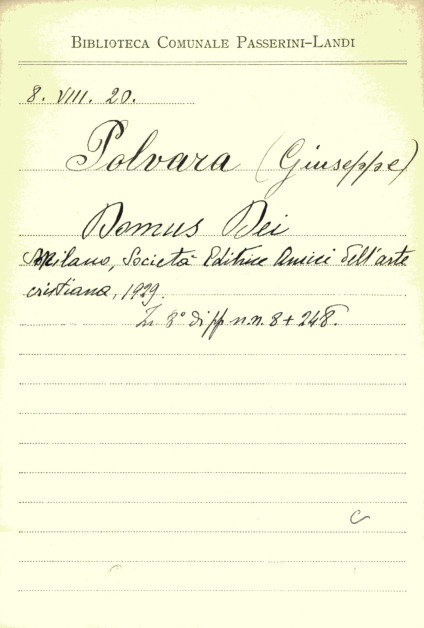 BIBLIOTECA COMUNALE PASSERINI-LANDI
8. VIII. 20.
Polvara (Giuseppe)
Domus Dei
Milano, Società Editrice Amici dell'arte
cristiana, 1929.
In 8° di pp n.n. 8 + 248.
C